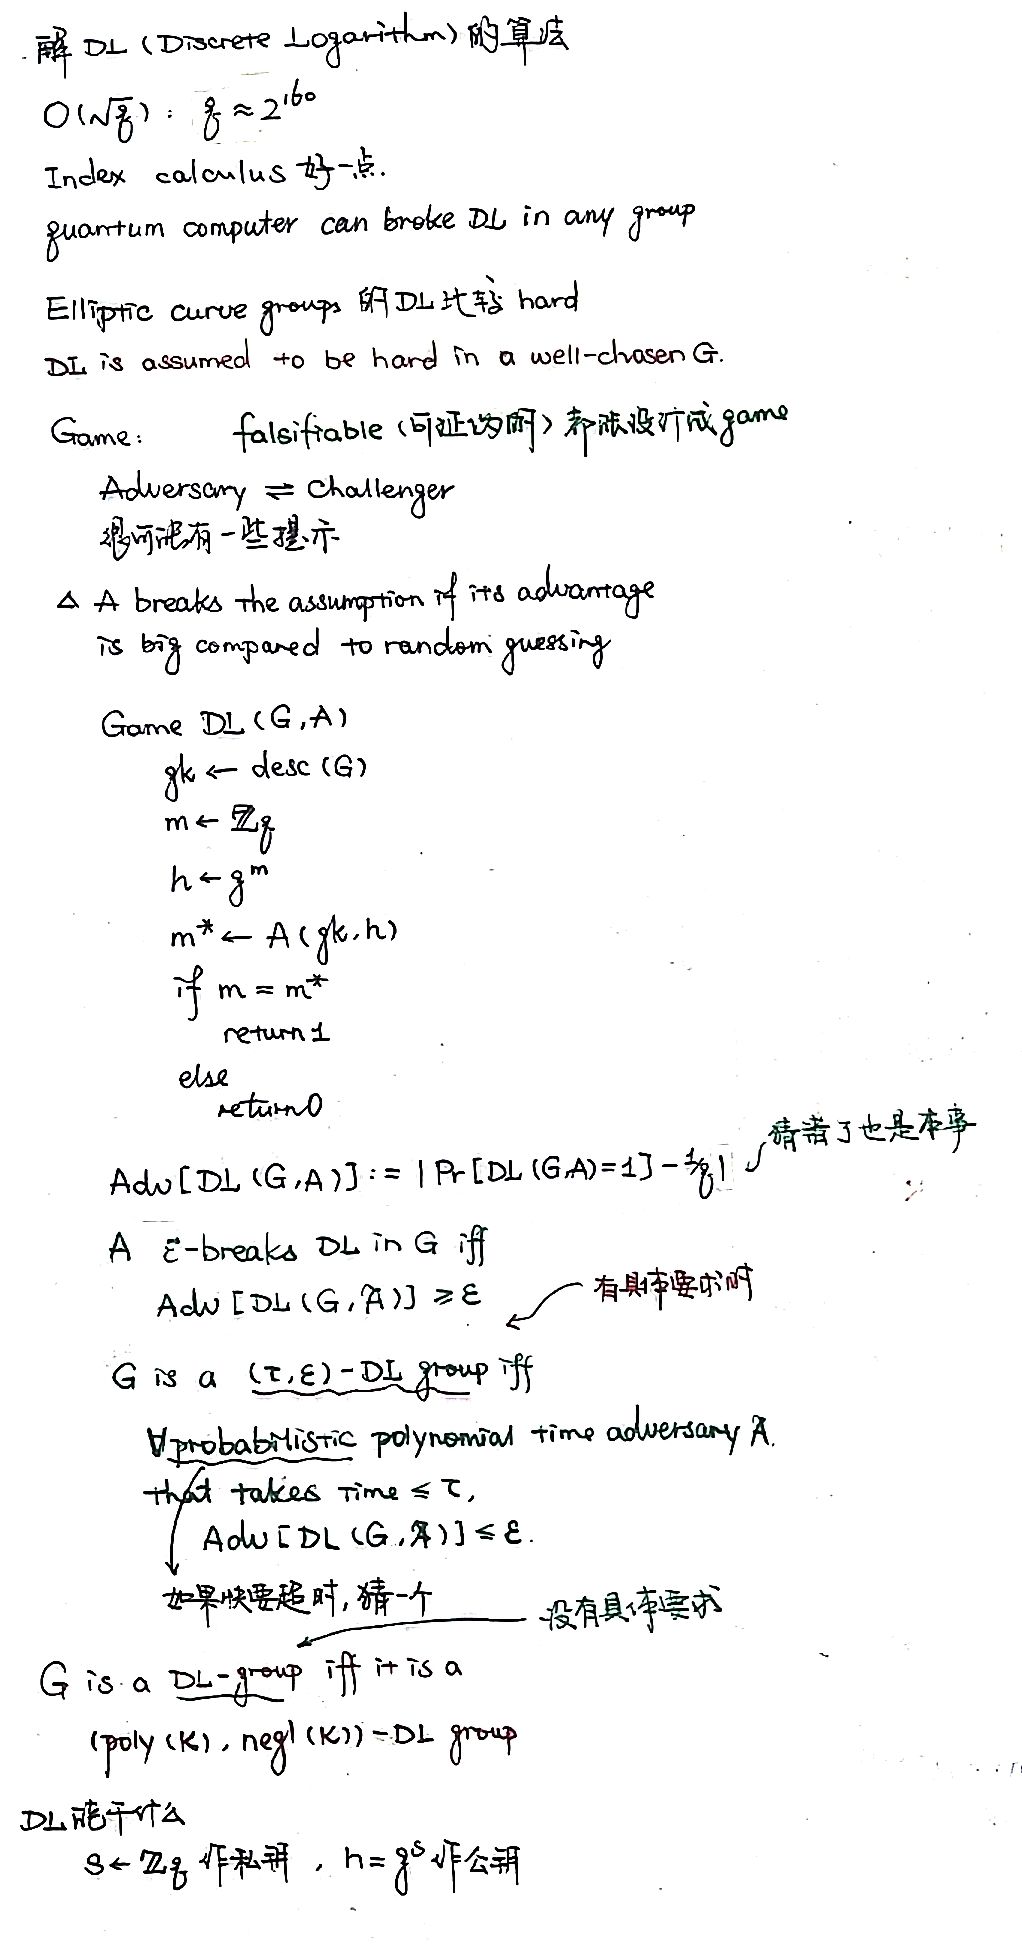 解 DL (Discrete Logarithm) 的算法
O(√q): q ≈ 2^160
Index calculus 好一点.
quantum computer can broke DL in any group
Elliptic curve groups 的 DL 比较 hard
DL is assumed to be hard in a well-chosen G.
Game: falsifiable (可证伪的) 都能设计成 game
Adversary ⇌ Challenger
很可能有一些提示
△ A breaks the assumption if its advantage
is big compared to random guessing
Game DL (G, A)
gk ← desc (G)
m ← ℤq
h ← g^m
m* ← A (gk, h)
if m = m*
return 1
else
return 0
猜着了也是本事
Adv [DL (G, A)] := | Pr [DL (G, A) = 1] - 1/q |
A ε-breaks DL in G iff
Adv [DL (G, A)] ≥ ε
有具体要求时
G is a (τ, ε) - DL group iff
∀ probabilistic polynomial time adversary A.
that takes time ≤ τ,
Adv [DL (G, A)] ≤ ε.
如果快要超时, 猜一个
没有具体要求
G is a DL-group iff it is a
(poly (κ), negl (κ)) - DL group
DL 能干什么
s ← ℤq 作私钥, h = g^s 作公钥